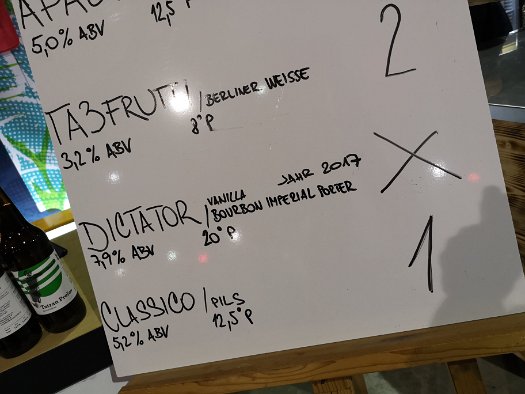 APAC
12,5°P
5,0% ABV
2
TA3FRUTTI / BERLINER WEISSE
3,2% ABV 8°P
X
DICTATOR / VANILLA JAHR 2017
BOURBON IMPERIAL PORTER
7,9% ABV 20°P
1
CLASSICO / PILS
5,2% ABV 12,5°P
Tatran Porter